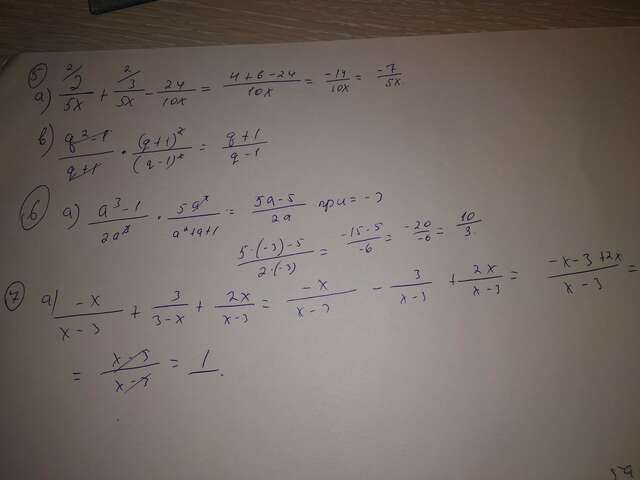 5) a) 2/5x + 3/5x - 24/10x = (4+6-24)/10x = -14/10x = -7/5x
в) (q²-1)/(q+1) · (q+1)²/(q-1)² = (q+1)/(q-1)
6) a) (a³-1)/2a³ · 5a²/(a²+a+1) = (5a-5)/2a при = -3
(5·(-3)-5)/(2·(-3)) = (-15-5)/-6 = -20/-6 = 10/3.
7) a) -x/(x-3) + 3/(3-x) + 2x/(x-3) = -x/(x-3) - 3/(x-3) + 2x/(x-3) = (-x-3+2x)/(x-3) =
= (x-3)/(x-3) = 1.